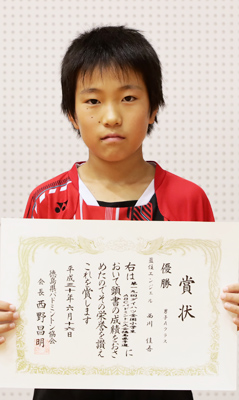 賞状
優勝
男子Aクラス
直信エンジェル
西川 佳吾
右は
おいて頭書の成績をおさ
めたのでその栄誉を讃え
これを賞します
平成三十年六月十六日
徳島県バドミントン協会
会長 西野昌明